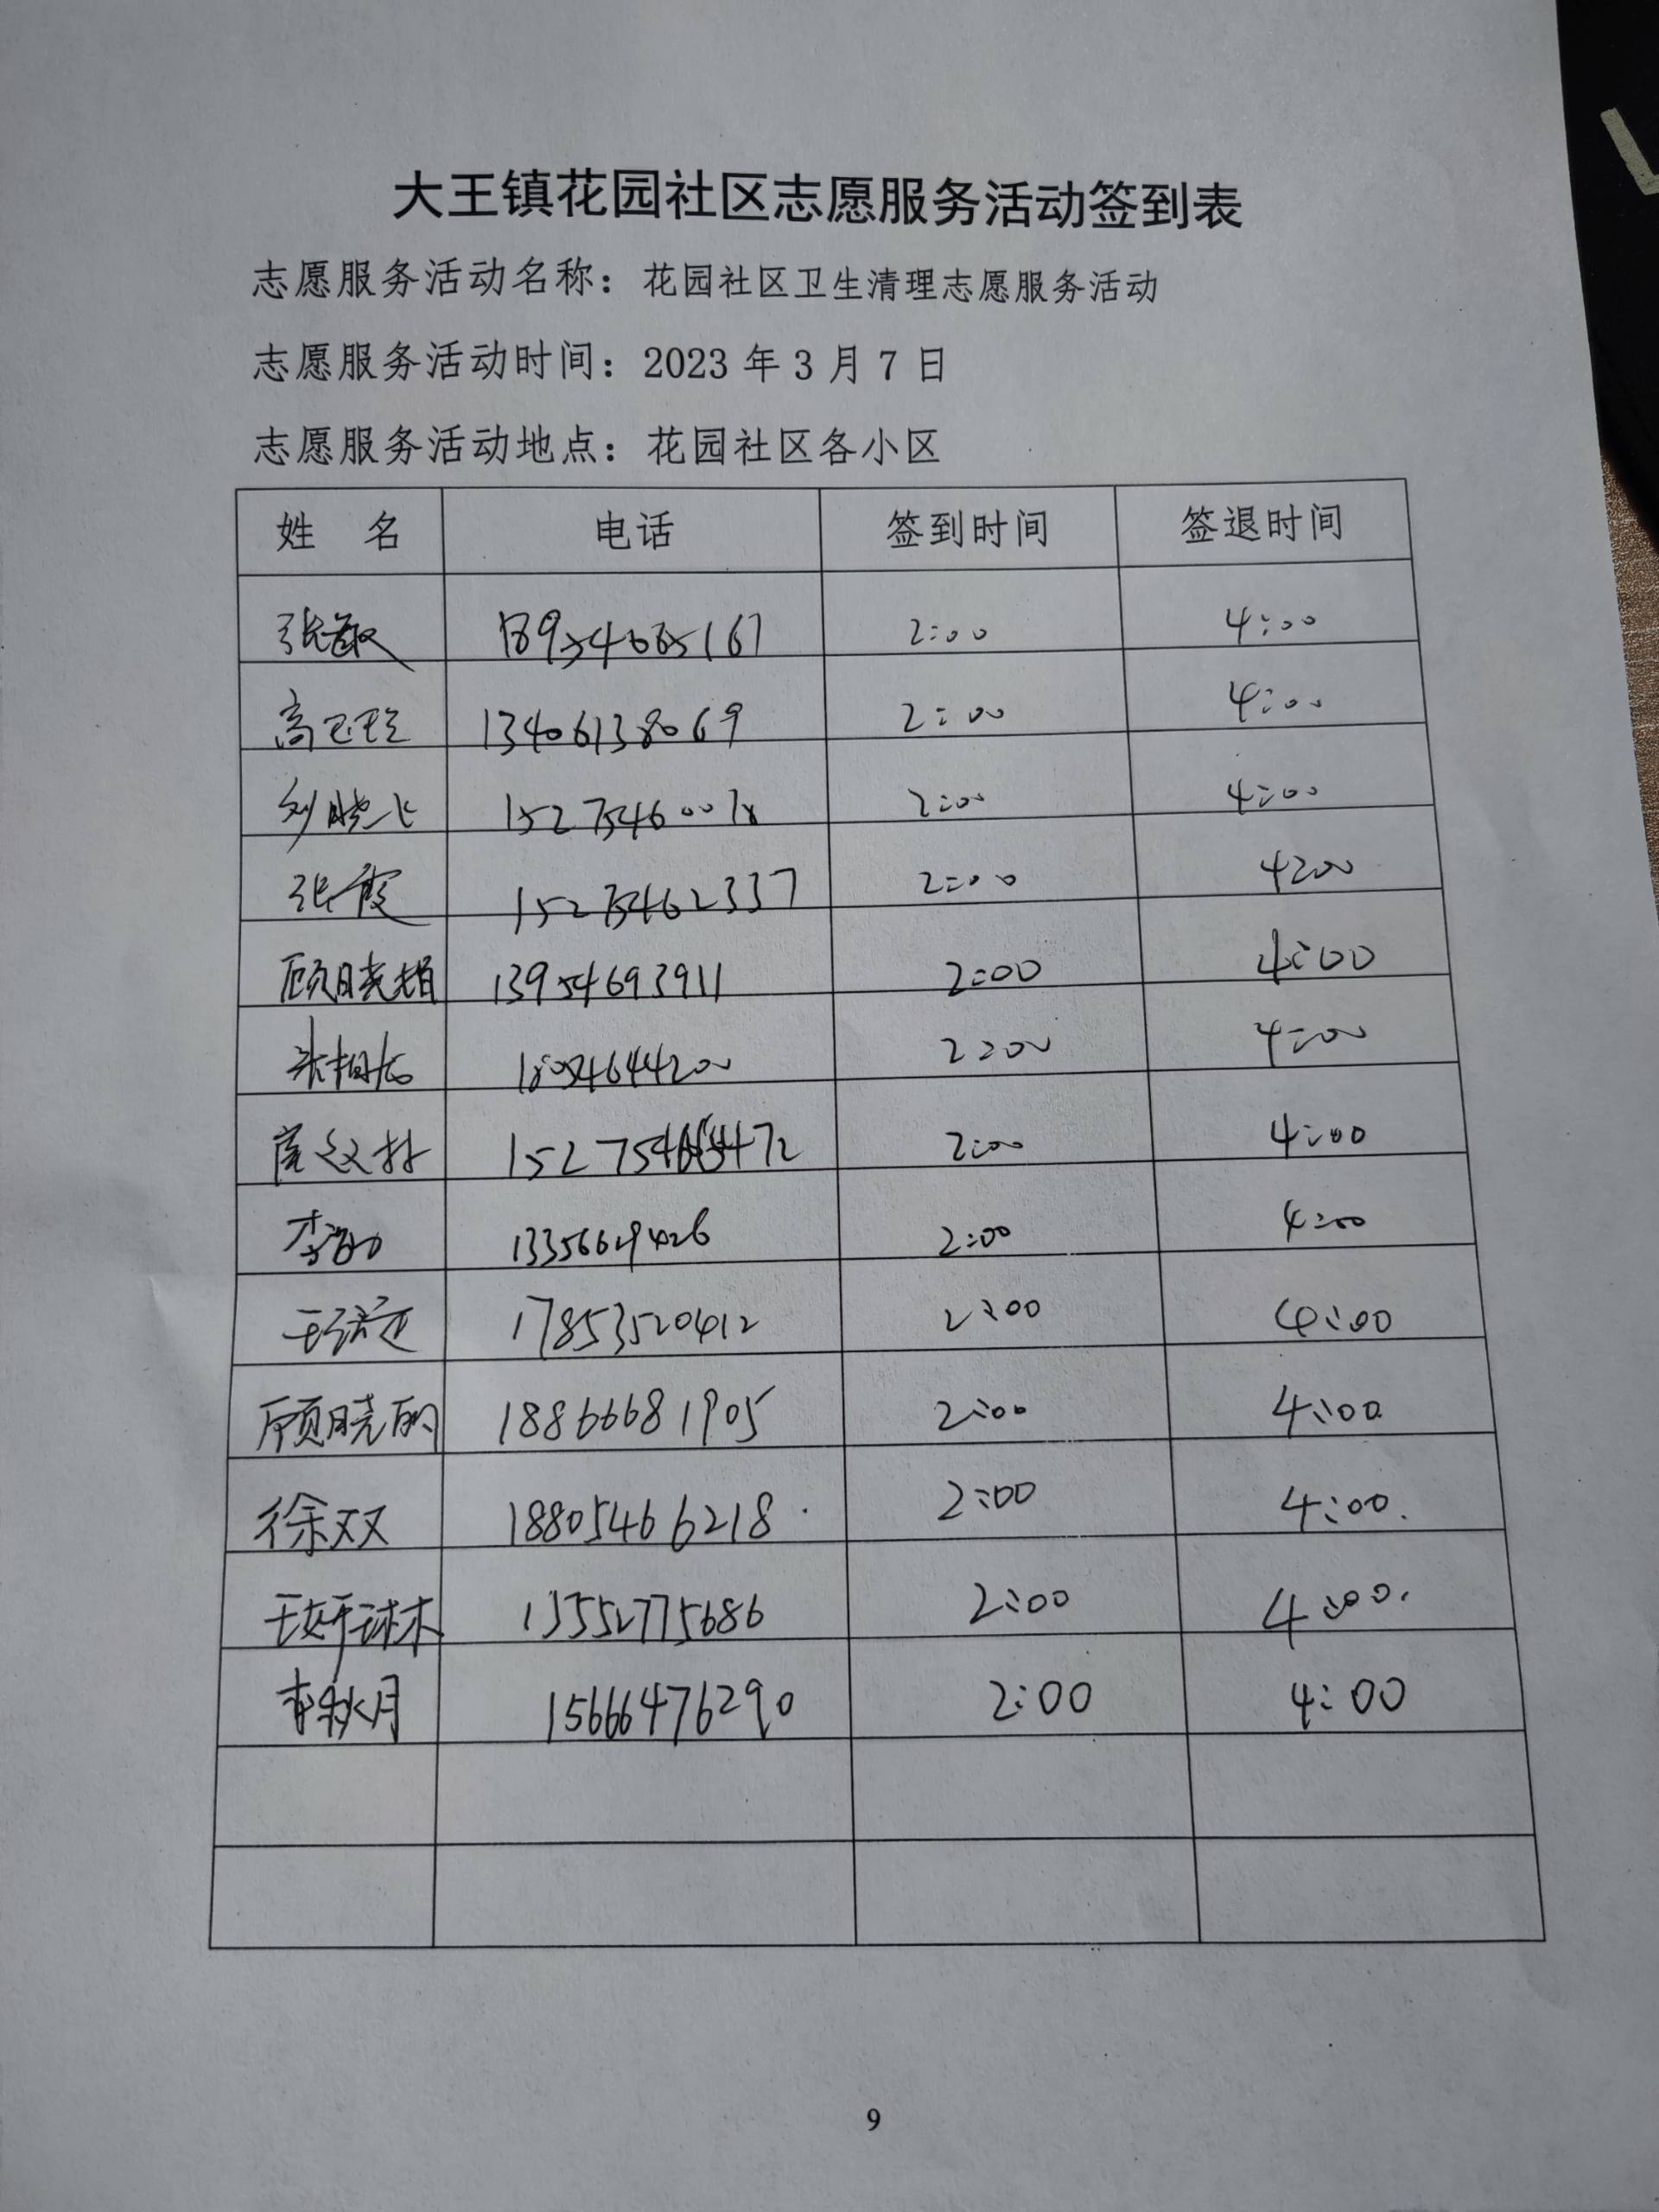 大王镇花园社区志愿服务活动签到表
志愿服务活动名称：花园社区卫生清理志愿服务活动
志愿服务活动时间：2023 年 3 月 7 日
志愿服务活动地点：花园社区各小区
姓 名 电话 签到时间 签退时间
张敏 2:00 4:00
13406138069 2:00 4:00
2:00 4:00
张霞 15275462337 2:00 4:00
顾晓娟 13954693911 2:00 4:00
2:00 4:00
2:00 4:00
2:00 4:00
17853520412 2:00 4:00
顾晓丽 18866681905 2:00 4:00
徐双双 18805466218 2:00 4:00.
王妍琳 13552775686 2:00 4:00.
李秋月 15666476290 2:00 4:00
9